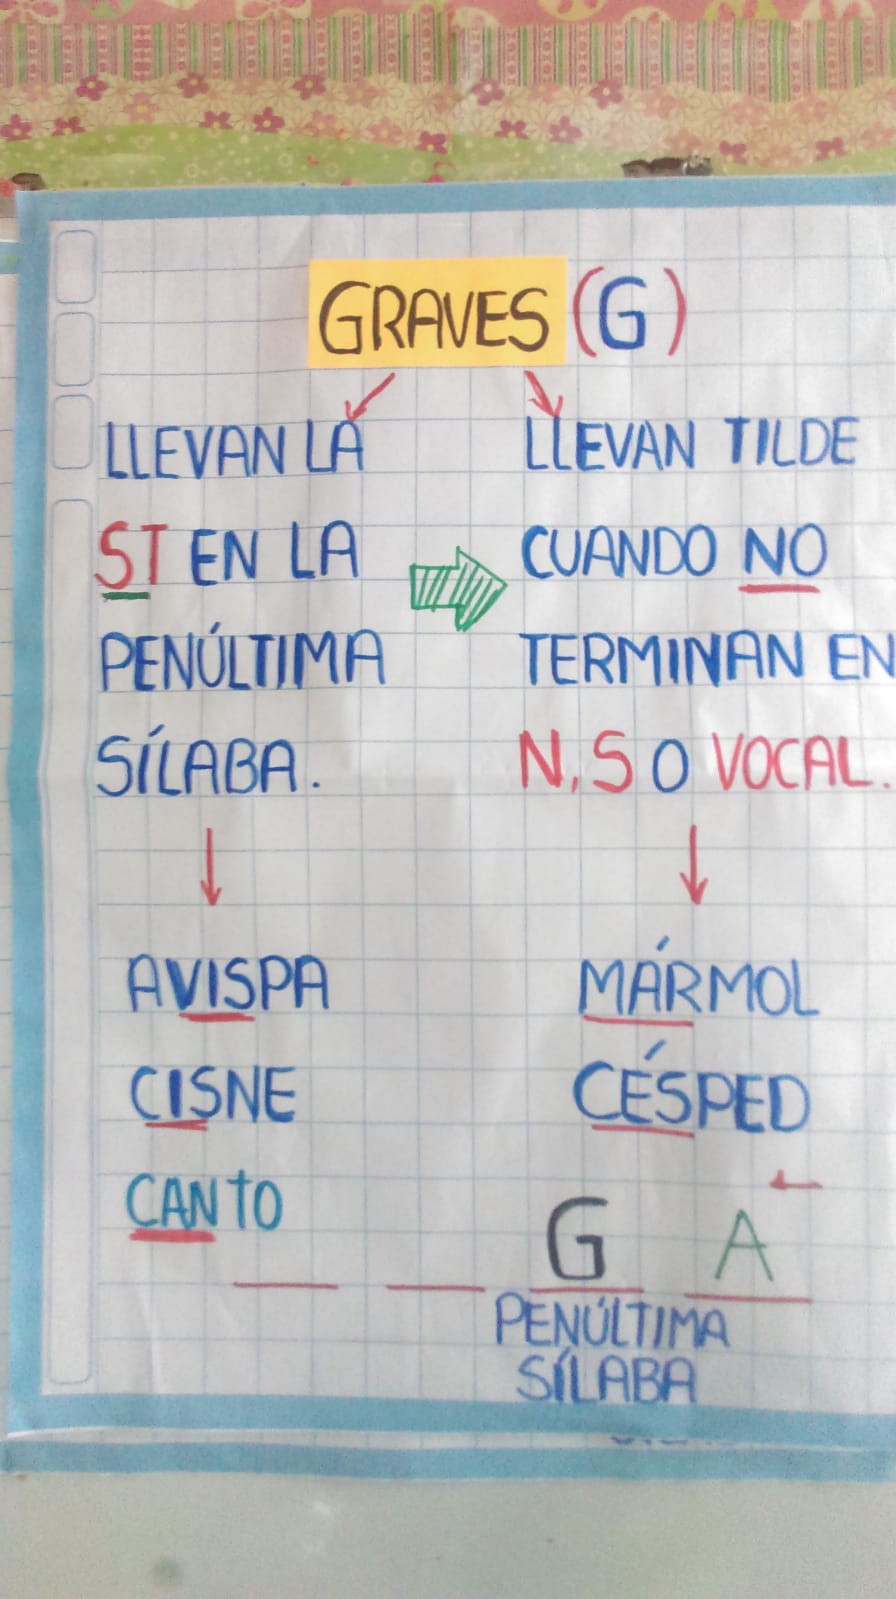 GRAVES (G)
LLEVAN LA
ST EN LA
PENÚLTIMA
SÍLABA.
AVISPA
CISNE
CANTO
LLEVAN TILDE
CUANDO NO
TERMINAN EN
N, S O VOCAL.
MÁRMOL
CÉSPED
G A
PENÚLTIMA
SÍLABA